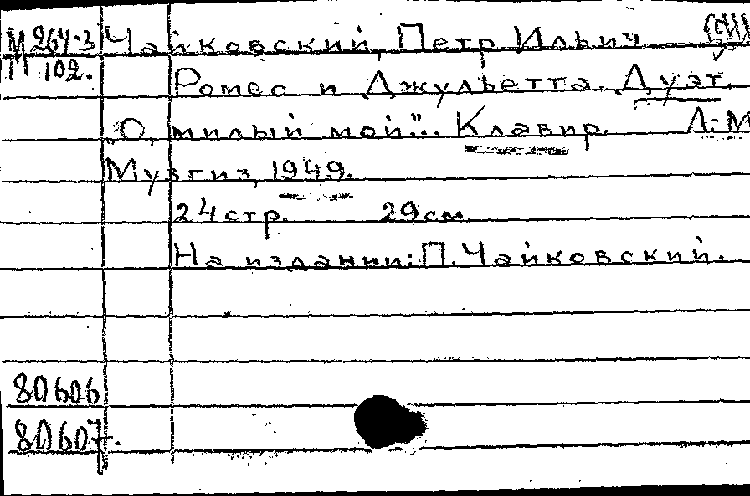 М 264-3 Чайковский, Петр Ильич
П 102. Ромео и Джульетта. Дуэт.
"О, милый мой"... Клавир. Л.-М
Музгиз, 1949.
24 стр. 29 см.
На издании: П. Чайковский.
80606
80607.